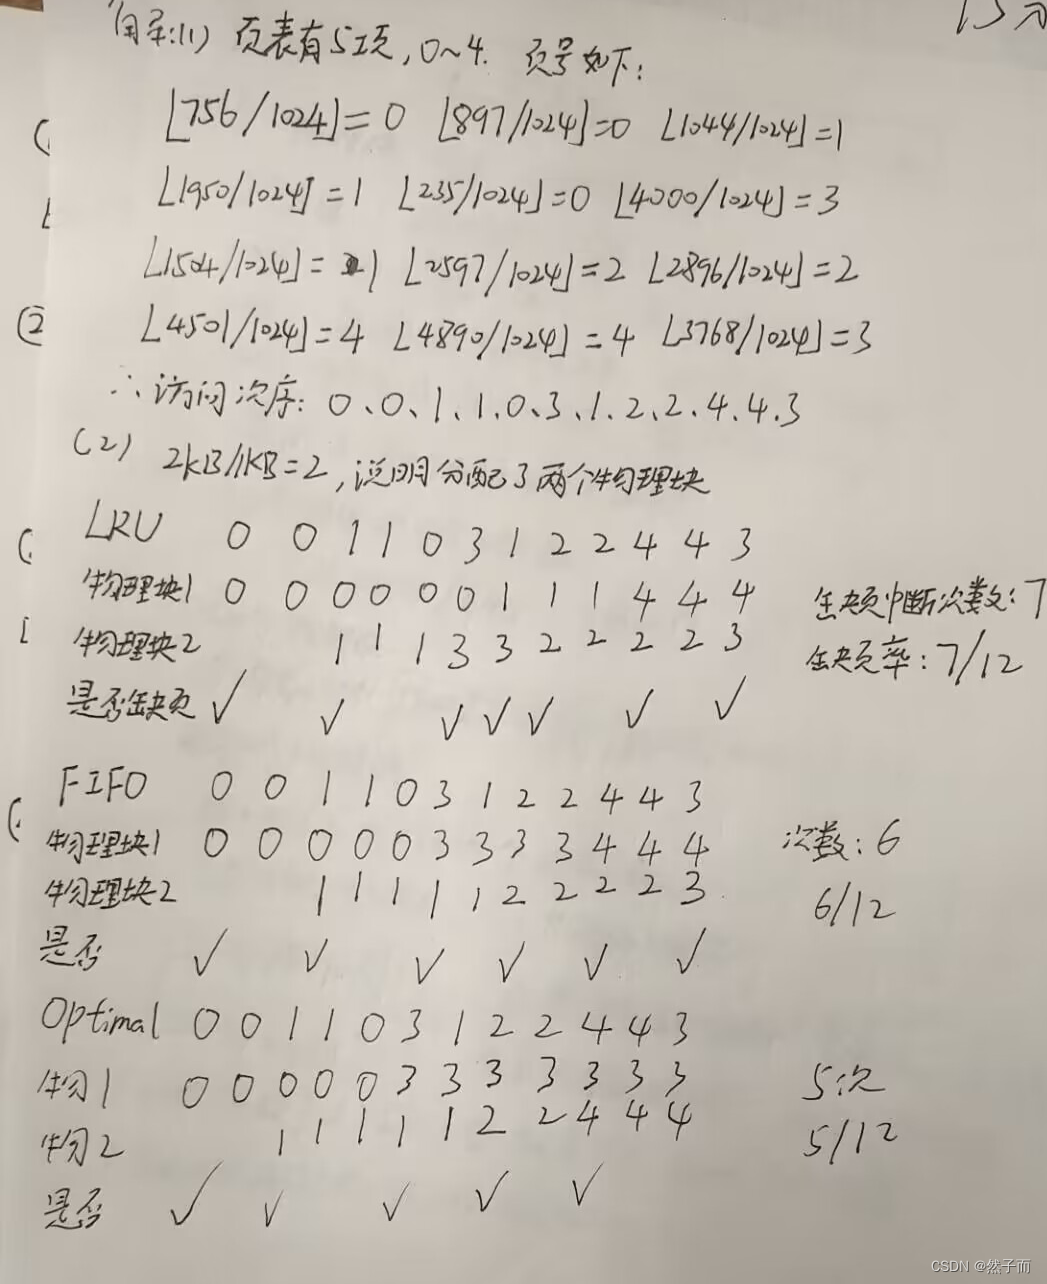 (1) 页表有5项,0~4. 页号如下:
⌊756/1024⌋=0 ⌊897/1024⌋=0 ⌊1044/1024⌋=1
⌊1950/1024⌋=1 ⌊235/1024⌋=0 ⌊4000/1024⌋=3
⌊1504/1024⌋=1 ⌊2597/1024⌋=2 ⌊2896/1024⌋=2
⌊4501/1024⌋=4 ⌊4890/1024⌋=4 ⌊3768/1024⌋=3
∴访问次序: 0、0、1、1、0、3、1、2、2、4、4、3
(2) 2kB/1KB=2,说明分配了两个物理块
LRU 0 0 1 1 0 3 1 2 2 4 4 3
物理块1 0 0 0 0 0 0 1 1 1 4 4 4 缺页中断次数:7
物理块2 1 1 1 3 3 2 2 2 2 3 缺页率:7/12
是否缺页 ✓ ✓ ✓ ✓ ✓ ✓ ✓
FIFO 0 0 1 1 0 3 1 2 2 4 4 3
物理块1 0 0 0 0 0 3 3 3 3 4 4 4 次数:6
物理块2 1 1 1 1 1 2 2 2 2 3 6/12
是否 ✓ ✓ ✓ ✓ ✓ ✓
Optimal 0 0 1 1 0 3 1 2 2 4 4 3
物1 0 0 0 0 0 3 3 3 3 3 3 3 5次
物2 1 1 1 1 1 2 2 4 4 4 5/12
是否 ✓ ✓ ✓ ✓ ✓
②
CSDN @然子而